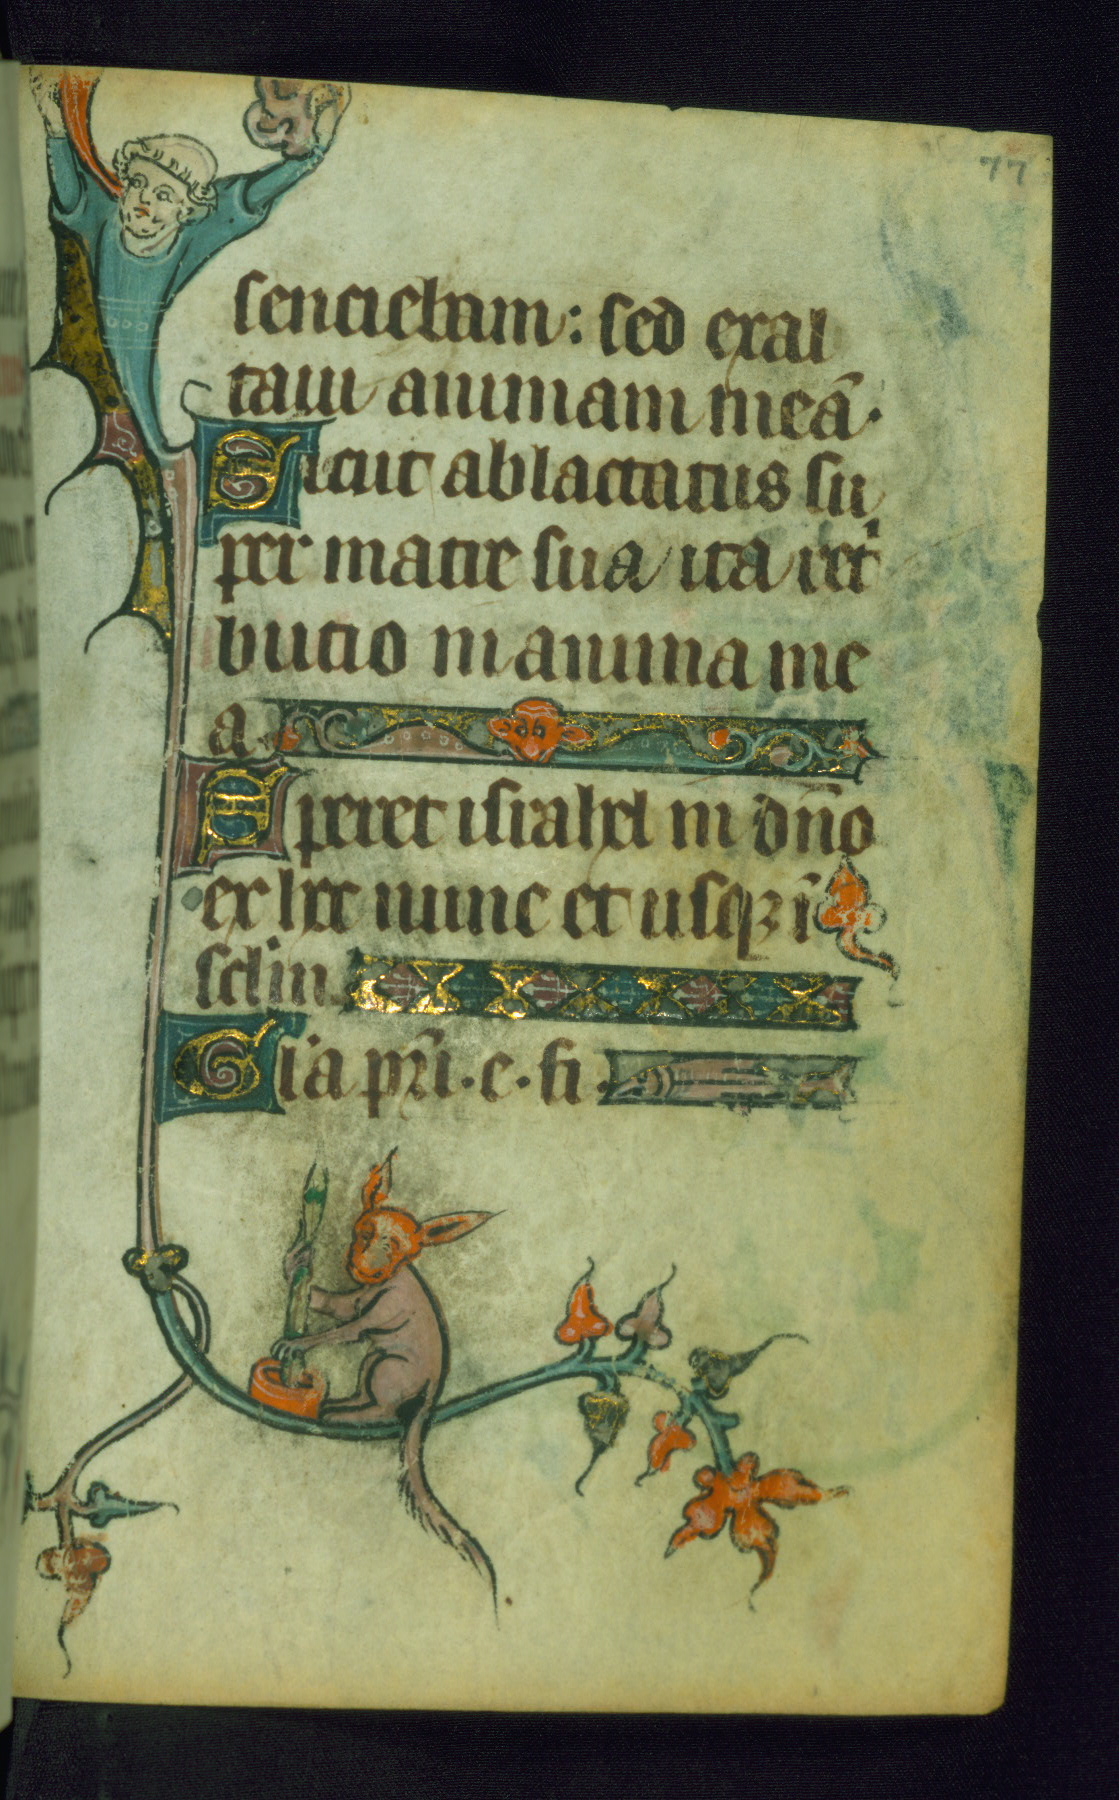 77
senciebam: sed exal
taui animam meā.
Sicut ablactatus su
per matre sua ita ret
bucio in anima me
a
Speret israhel in dn̄o
ex hec nunc et usqꝫ ī
sclm
Glīa pr̄i. e. fi